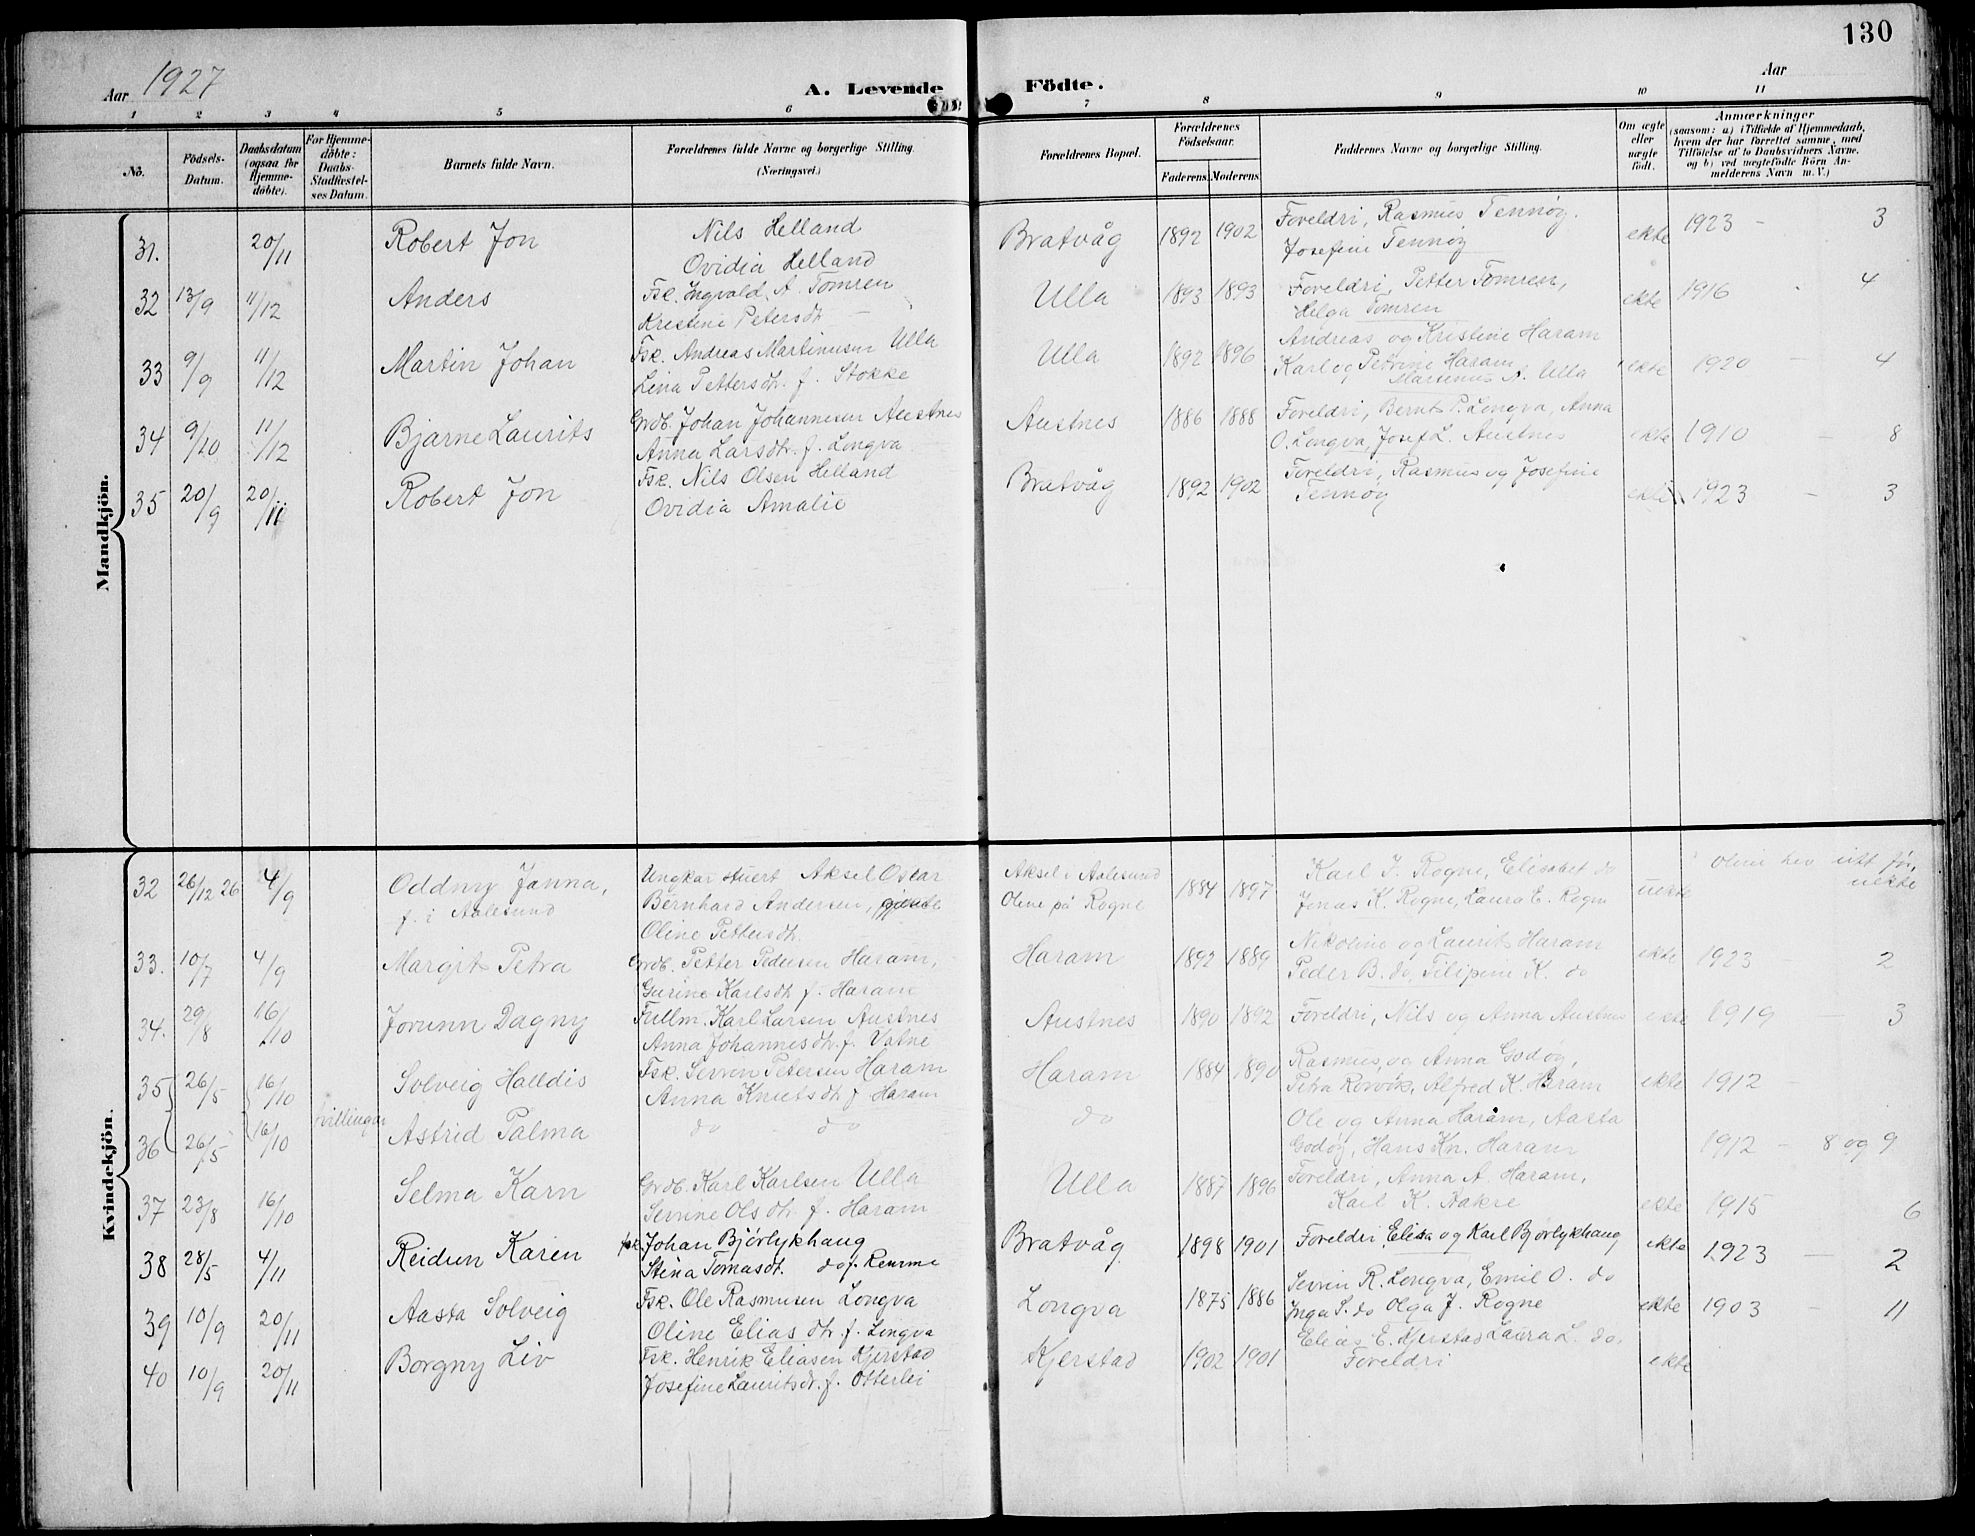 130
Aar 1927
A. Levende Födte.
Aar
1 2 3 4 5 6 7 8 9 10 11
No.
Födsels-Datum.
Daabsdatum (ogsaa for Hjemmedöbte).
For Hjemmedöbte: Daabs-Stadfæstelses Datum.
Barnets fulde Navn.
Forældrenes fulde Navne og borgerlige Stilling.
(Næringsvei.)
Forældrenes Bopæl.
Forældrenes Födselsaar.
Faderens. Moderens.
Faddernes Navne og borgerlige Stilling.
Om ægte eller uægte födt.
Anmærkninger
(saasom: a) i Tilfælde af Hjemmedaab, hvem der har forrettet samme, med Tilföielse af to Daabsvidners Navne, og b) ved uægtefödte Börn Anmelderens Navn m. V.)
Mandkjön.
31. 20/11 Robert Jon Nils Helland Bratvåg 1892 1902 Foreldri, Rasmus Tennøy. ekte 1923 – 3
Ovidia Helland Josefine Tennøy
32 13/9 11/12 Anders Fsk. Ingvald A. Tomren Ulla 1893 1893 Foreldri, Petter Tomren, ekte 1916 4
Kristine Petersdt. — Helga Tomren
33 9/9 11/12 Martin Johan Fsk. Andreas Martinusen Ulla Ulla 1892 1896 Andreas og Kristine Haram ekte 1920 – 4
Lina Pettersdtr. f. Stokke Karl og Petrine Haram
Martinus A. Ulla
34 9/10 11/12 Bjarne Laurits Grdb. Johan Johannesen Austnes Austnes 1886 1888 Foreldri, Bernt P. Longva, Anna ekte 1910 – 8
Anna Larsdtr. f. Longva O. Longva, Josef L. Austnes
35 20/9 20/11 Robert Jon Fsk. Nils Olsen Helland Bratvåg 1892 1902 Foreldri, Rasmus og Josefine ekte 1923 – 3
Ovidia Amalie Tennøy
Kvindekjön.
32 26/12 26 4/9 Oddny Janna, Ungkar stuert Aksel Oskar Aksel i Aalesund 1884 1897 Karl J. Rogne, Elisabet do uekte Oline hev eitt før,
f. i Aalesund Bernhard Andersen, gjente Oline på Rogne Jonas K. Rogne, Laura E. Rogne uekte
Oline Pettersdtr.
33. 10/7 4/9 Margit Petra Grdb. Petter Pedersen Haram, Haram 1892 1889 Nikoline og Laurits Haram ekte 1923 – 2
Gurine Karlsdtr f. Haram Peder B. do, Filipine K. do
34. 29/8 16/10 Jorunn Dagny Fullm. Karl Larsen Austnes Austnes 1890 1892 Foreldri, Nils og Anna Austnes ekte 1919 — 3
Anna Johannesdtr. f. Vatne
35 26/5 16/10 Solveig Halldis Fsk. Sevrin Petersen Haram Haram 1884 1890 Rasmus, og Anna Godøy, ekte 1912 –
Anna Knutsdtr f Haram Petra Rovik, Alfred K. Haram
tvillingar
36 26/5 16/10 Astrid Palma do do do Ole og Anna Haram, Aasta 1912 – 8 og 9
Godøy, Hans Kn. Haram
37 23/8 16/10 Selma Karn Grdb. Karl Karlsen Ulla Ulla 1887 1896 Foreldri, Anna A. Haram, ekte 1915 6
Sevrine Olsdtr f. Haram Karl K. Aakre
38 28/5 4/11 Reidun Karen fsk. Johan Bjørlykhaug Bratvåg 1898 1901 Foreldri Elisa og Karl Bjørlykhaug ekte 1923 — 2
Stina Tomasdt. do f. Remme
39 10/9 20/11 Aasta Solveig Fsk. Ole Rasmusen Longva Longva 1875 1886 Sevrin R. Longva, Emil O. do ekte 1903 – 11
Oline Elias dtr. f. Longva Inga S. do Olga J. Rogne
40 10/9 20/11 Borgny Liv Fsk. Henrik Eliasen Kjerstad Kjerstad 1902 1901 Elias E. Kjerstad Laura L. do. ekte
Josefine Lauritsdtr. f. Otterlei Foreldri